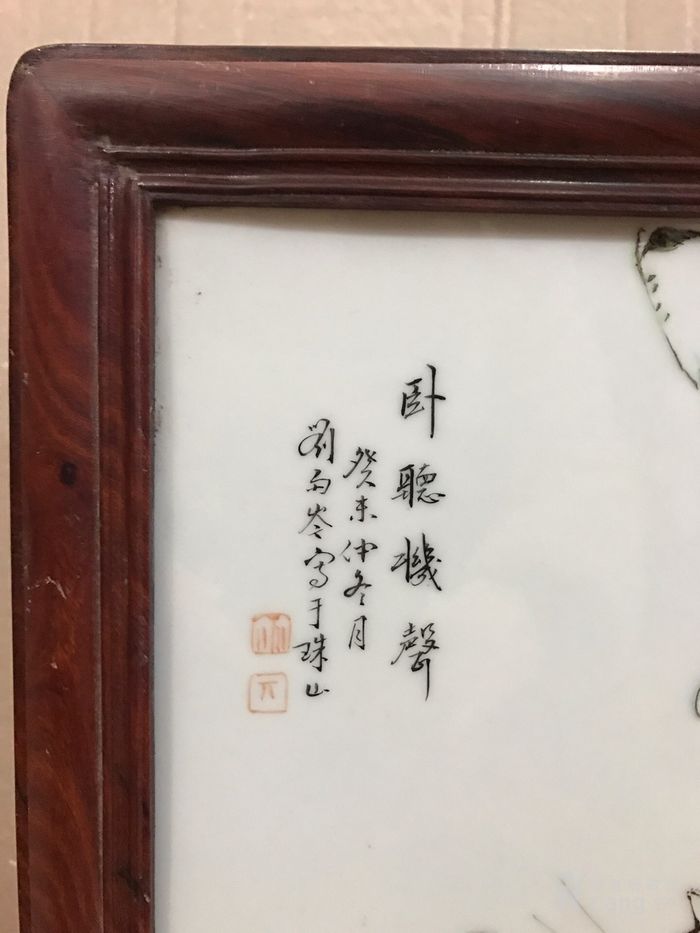 卧聽機聲
癸未仲冬月
劉雨岑寫于珠山